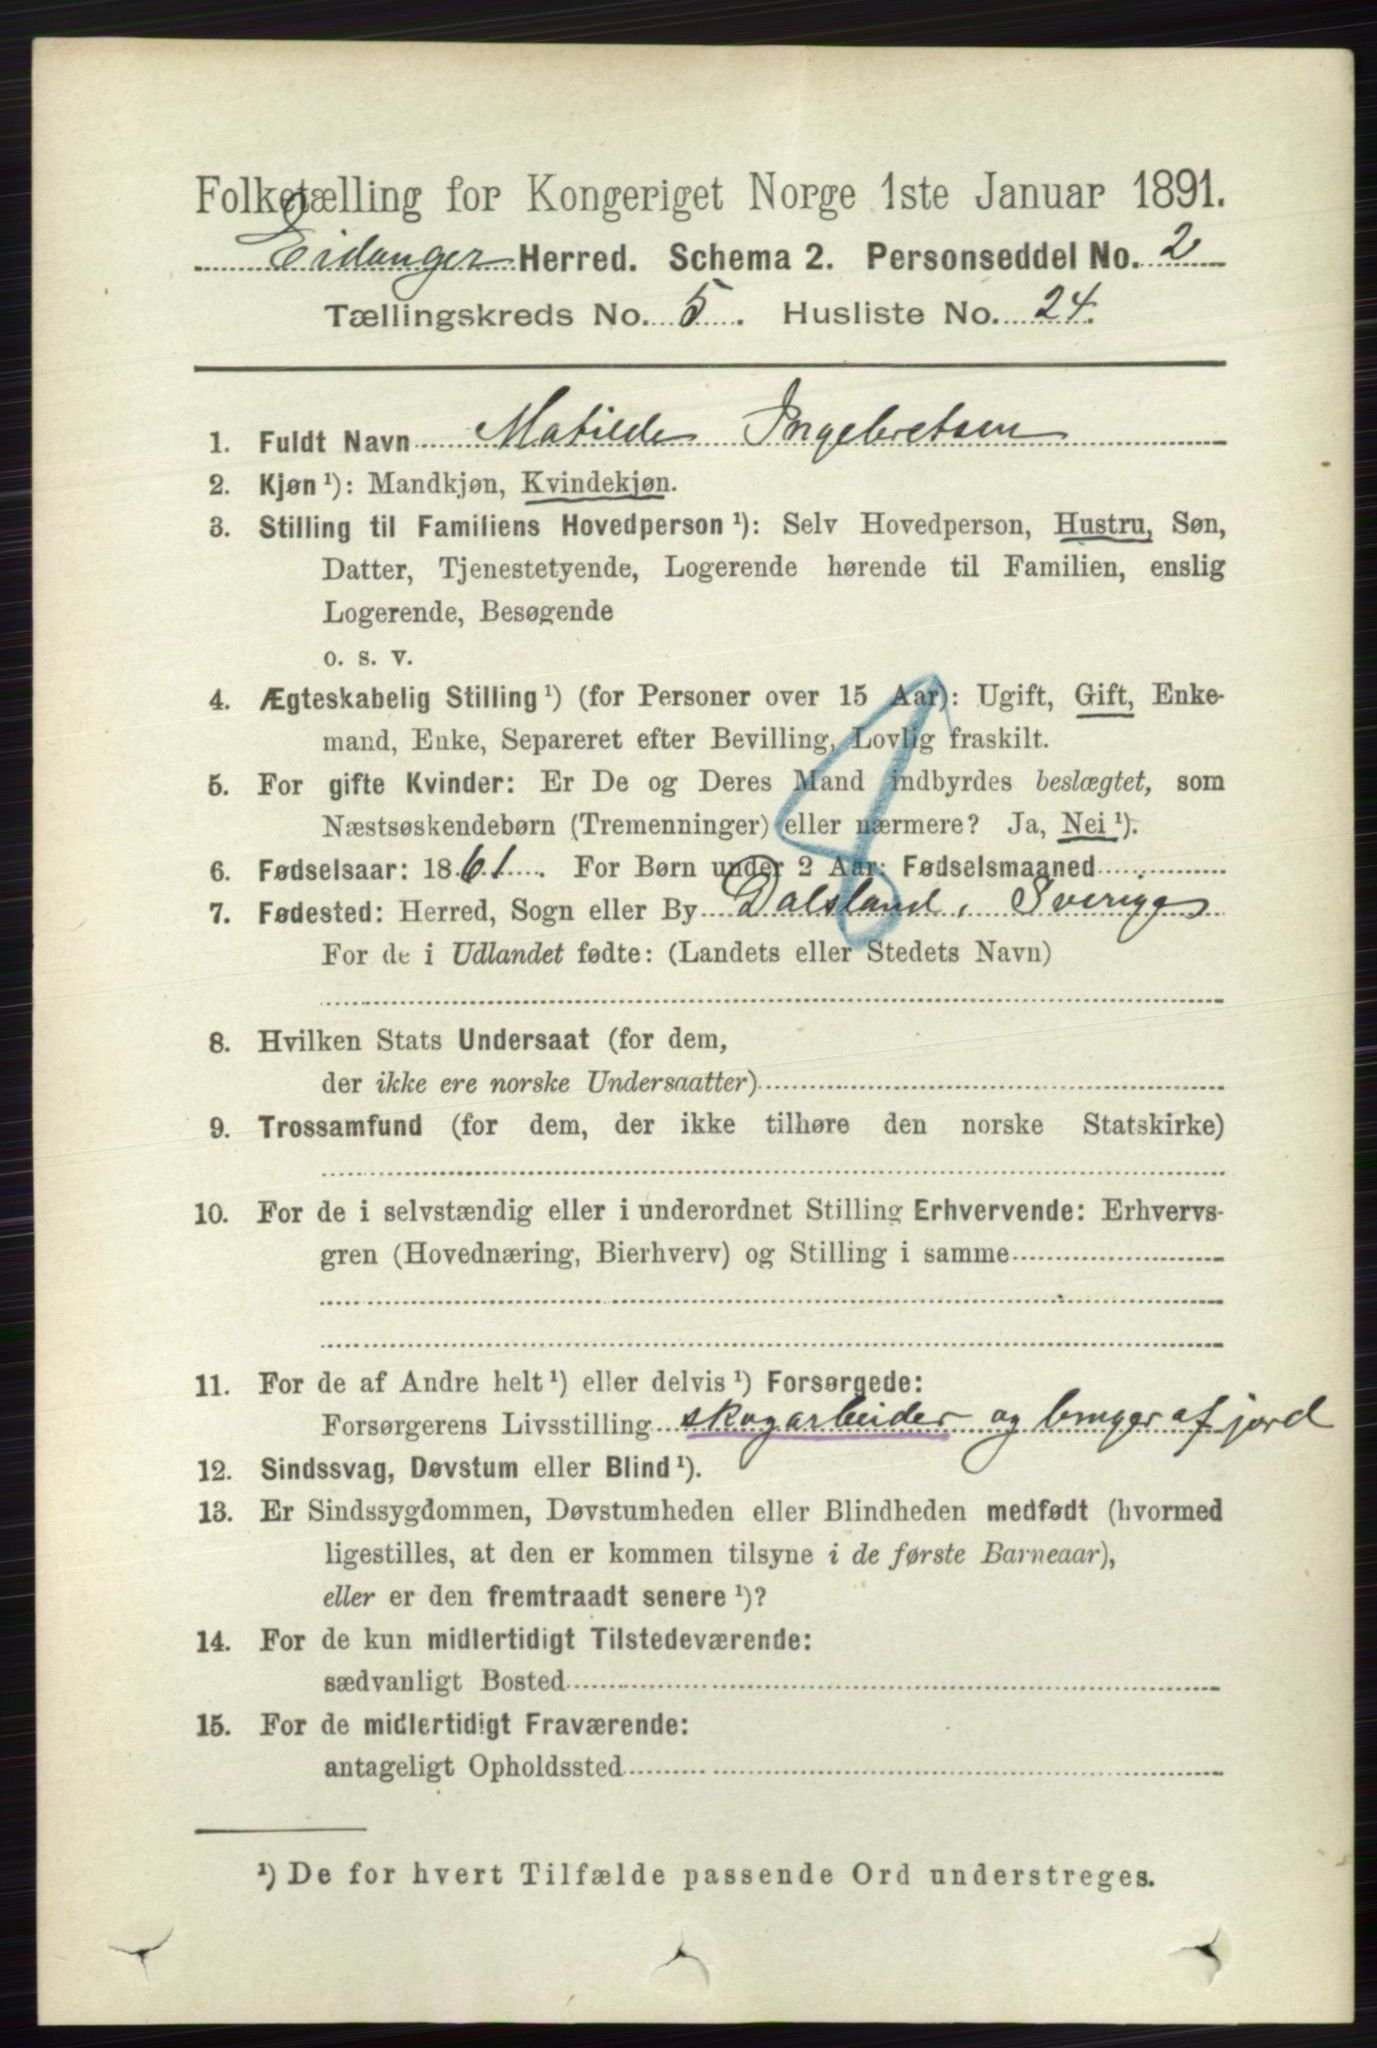 Folketælling for Kongeriget Norge 1ste Januar 1891.
Eidanger Herred. Schema 2. Personseddel No. 2
Tællingskreds No. 5. Husliste No. 24.
1. Fuldt Navn Matilde Ingebretsen
2. Kjøn ¹): Mandkjøn, Kvindekjøn.
3. Stilling til Familiens Hovedperson ¹): Selv Hovedperson, Hustru, Søn,
Datter, Tjenestetyende, Logerende hørende til Familien, enslig
Logerende, Besøgende
o. s. v.
4. Ægteskabelig Stilling ¹) (for Personer over 15 Aar): Ugift, Gift, Enke-
mand, Enke, Separeret efter Bevilling, Lovlig fraskilt.
5. For gifte Kvinder: Er De og Deres Mand indbyrdes beslægtet, som
Næstsøskendebørn (Tremenninger) eller nærmere? Ja, Nei ¹).
6. Fødselsaar: 1861. For Børn under 2 Aar: Fødselsmaaned
7. Fødested: Herred, Sogn eller By Dalsland, Sverige
For de i Udlandet fødte: (Landets eller Stedets Navn)
8. Hvilken Stats Undersaat (for dem,
der ikke ere norske Undersaatter)
9. Trossamfund (for dem, der ikke tilhøre den norske Statskirke)
10. For de i selvstændig eller i underordnet Stilling Erhvervende: Erhvervs-
gren (Hovednæring, Bierhverv) og Stilling i samme
11. For de af Andre helt ¹) eller delvis ¹) Forsørgede:
Forsørgerens Livsstilling skogarbeider og bruger af jord
12. Sindssvag, Døvstum eller Blind ¹).
13. Er Sindssygdommen, Døvstumheden eller Blindheden medfødt (hvormed
ligestilles, at den er kommen tilsyne i de første Barneaar),
eller er den fremtraadt senere ¹)?
14. For de kun midlertidigt Tilstedeværende:
sædvanligt Bosted
15. For de midlertidigt Fraværende:
antageligt Opholdssted
¹) De for hvert Tilfælde passende Ord understreges.